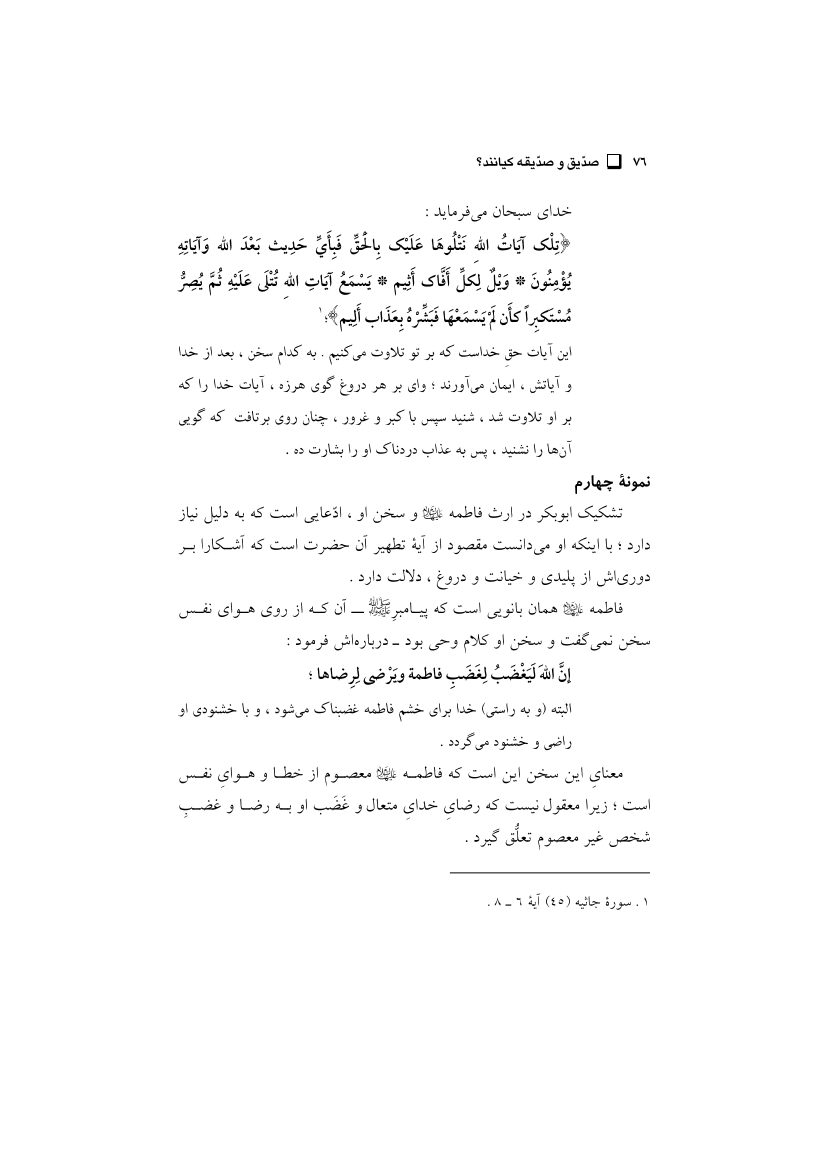 ٧٦ ❑ صدّیق و صدّیقه کیانند؟
خدای سبحان می‌فرماید :
﴿تِلْک آيَاتُ اللهِ نَتْلُوهَا عَلَيْک بِالْحَقِّ فَبِأَيِّ حَدِيث بَعْدَ الله وَآيَاتِهِ
يُؤْمِنُونَ * وَيْلٌ لِكلِّ أَفَّاک أَثِيم * يَسْمَعُ آيَاتِ اللهِ تُتْلَى عَلَيْهِ ثُمَّ يُصِرُّ
مُسْتَكبِراً كأَن لَمْ يَسْمَعْهَا فَبَشِّرْهُ بِعَذَاب أَلِيم﴾؛١
این آیات حقِ خداست که بر تو تلاوت می‌کنیم . به کدام سخن ، بعد از خدا
و آیاتش ، ایمان می‌آورند ؛ وای بر هر دروغ گوی هرزه ، آیات خدا را که
بر او تلاوت شد ، شنید سپس با کبر و غرور ، چنان روی برتافت که گویی
آن‌ها را نشنید ، پس به عذاب دردناک او را بشارت ده .
نمونهٔ چهارم
تشکیک ابوبکر در ارث فاطمه علیها السلام و سخن او ، ادّعایی است که به دلیل نیاز
دارد ؛ با اینکه او می‌دانست مقصود از آیهٔ تطهیر آن حضرت است که آشـکارا بـر
دوری‌اش از پلیدی و خیانت و دروغ ، دلالت دارد .
فاطمه علیها السلام همان بانویی است که پیـامبرﷺ ـ آن کـه از روی هـوای نفـس
سخن نمی‌گفت و سخن او کلام وحی بود ـ درباره‌اش فرمود :
إنَّ اللهَ لَيَغْضَبُ لِغَضَبِ فاطمة ويَرْضى لِرِضاها ؛
البته (و به راستی) خدا برای خشم فاطمه غضبناک می‌شود ، و با خشنودی او
راضی و خشنود می‌گردد .
معنايِ این سخن این است که فاطمـه علیها السلام معصـوم از خطـا و هـوايِ نفـس
است ؛ زیرا معقول نیست که رضايِ خدايِ متعال و غَضَب او بـه رضـا و غضـبِ
شخص غیر معصوم تعلُّق گیرد .
١ . سورهٔ جاثیه (٤٥) آیهٔ ٦ ـ ٨ .